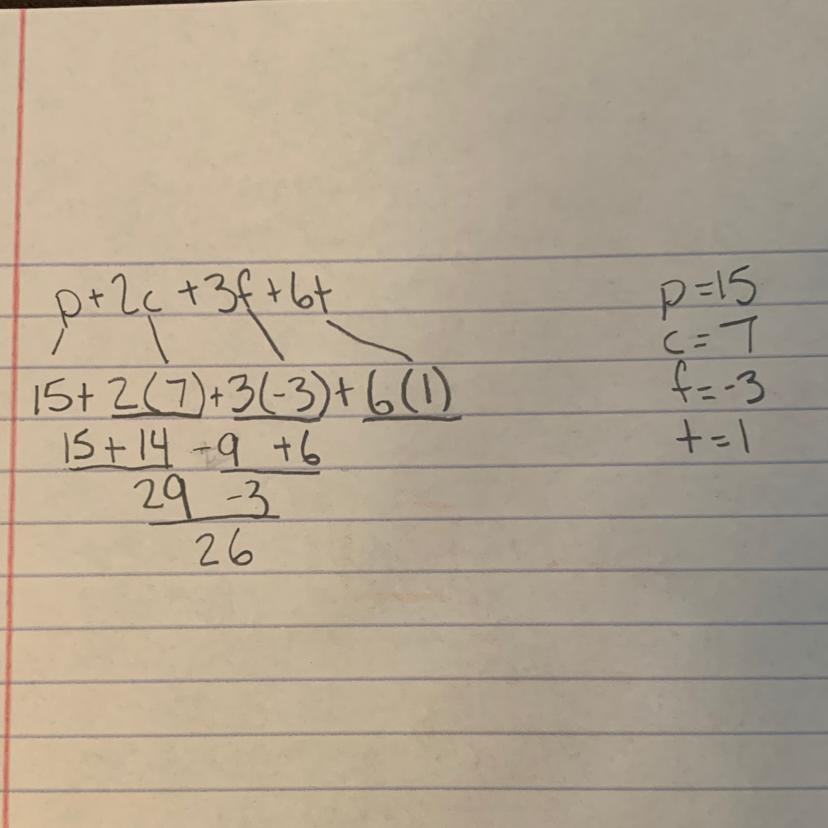 p+2c+3f+6t
15+2(7)+3(-3)+6(1)
15+14 -9 +6
29 -3
26
p=15
c=7
f=-3
t=1